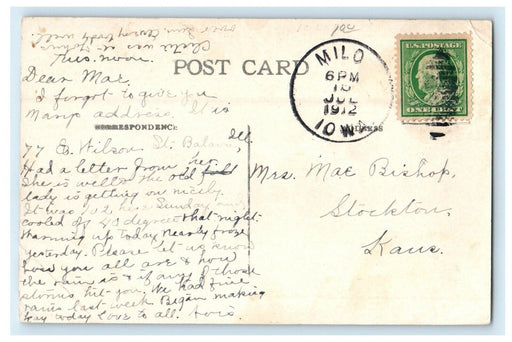 Chester was at John's
this noon.
Dear Mae,
I forgot to give you
Mary's address. It is
77 E. Wilson St. Batavia, Ill.
Had a letter from her.
She is well & the old
lady is getting on nicely.
It was 102 here Sunday
cooled off 40 degrees that night.
Warming up today nearly froze
yesterday. Please let us know
how you all are & how
the rain is & if any of those
storms hit you. We had fine
rains last week. Began making
hay today. Love to all.
POST CARD
CORRESPONDENCE
ADDRESS
MILO
6 PM
JUL
1912
IOWA
U.S. POSTAGE
ONE CENT
Mrs. Mae Bishop,
Stockton,
Kans.